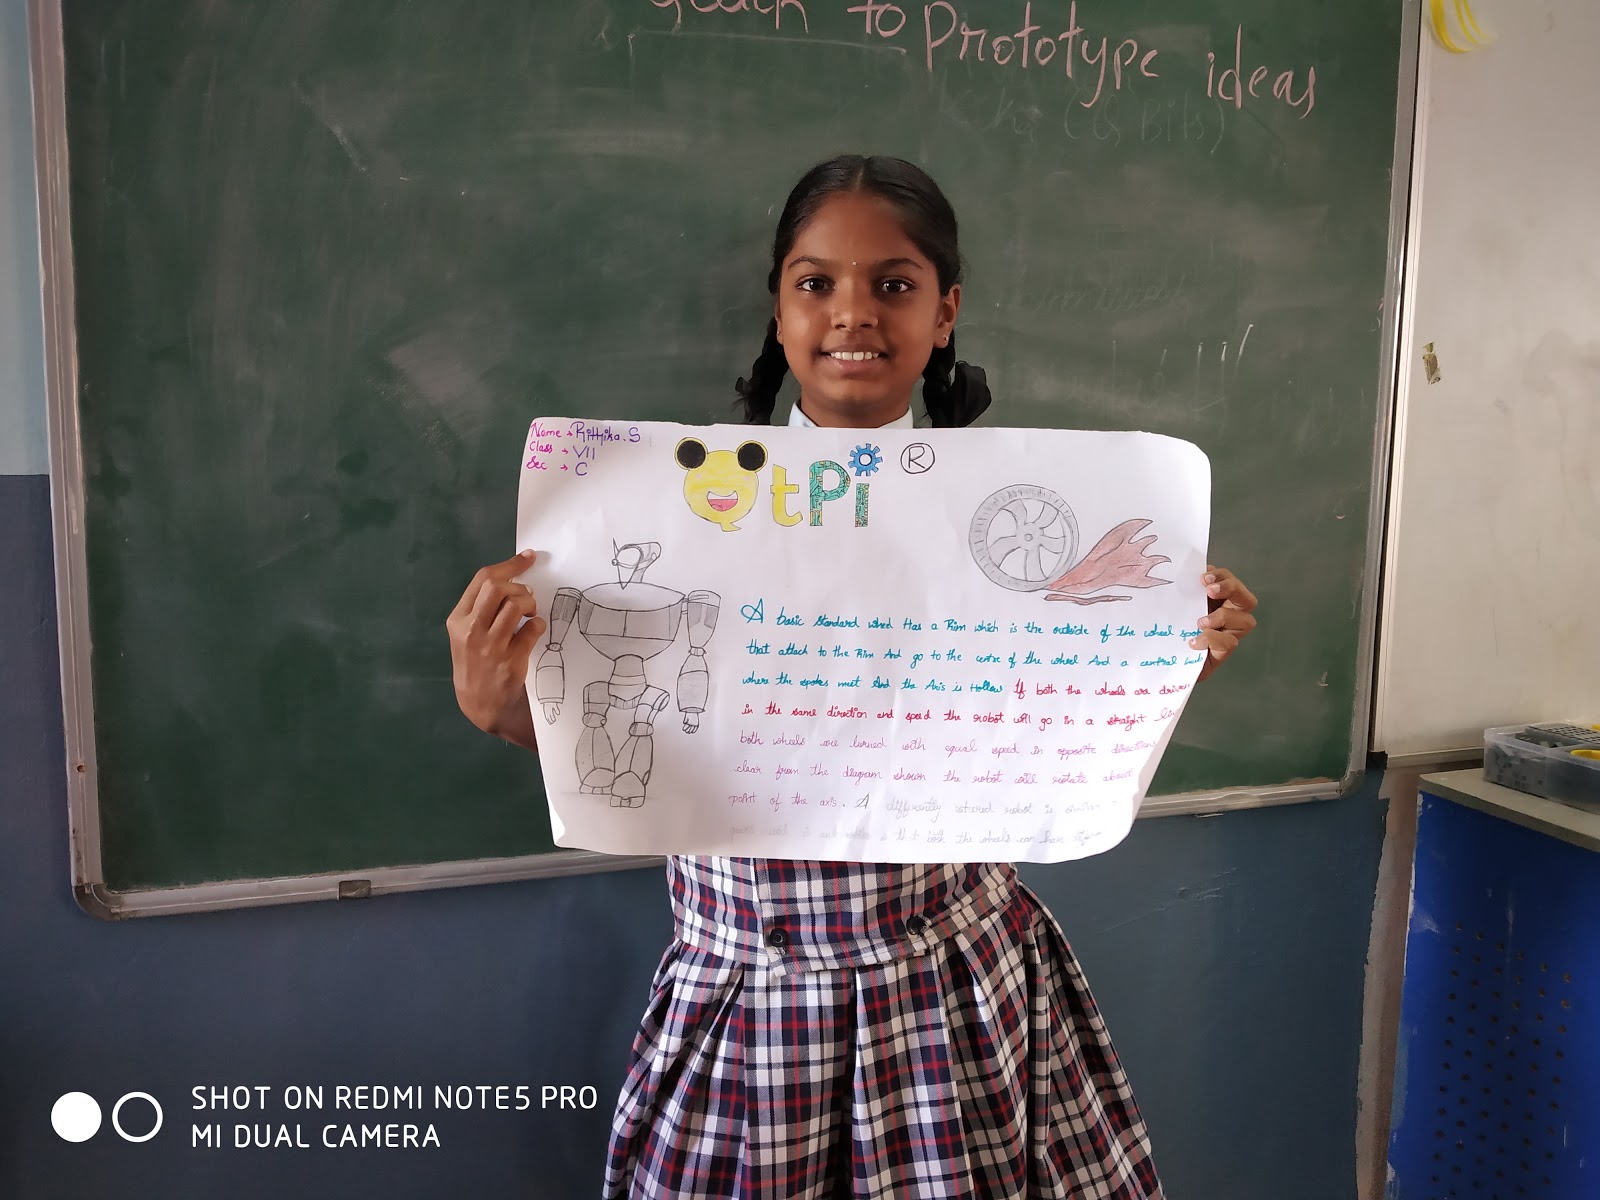 to Prototype ideas
(Q Bits)
Name → Rithika.S
Class → VII
Sec → C
tPi ®
A basic standard wheel Has a Rim which is the outside of the wheel
that attach to the Rim And go to the centre of the wheel And a central
where the spokes meet And the Axis is Hollow If both the wheels are
in the same direction and speed the robot will go in a straight
both wheels are turned with equal speed in opposite
clear from the diagram shown the robot will rotate about
point of the axis. A differently robot is
is that both the wheels can have
SHOT ON REDMI NOTE5 PRO
MI DUAL CAMERA